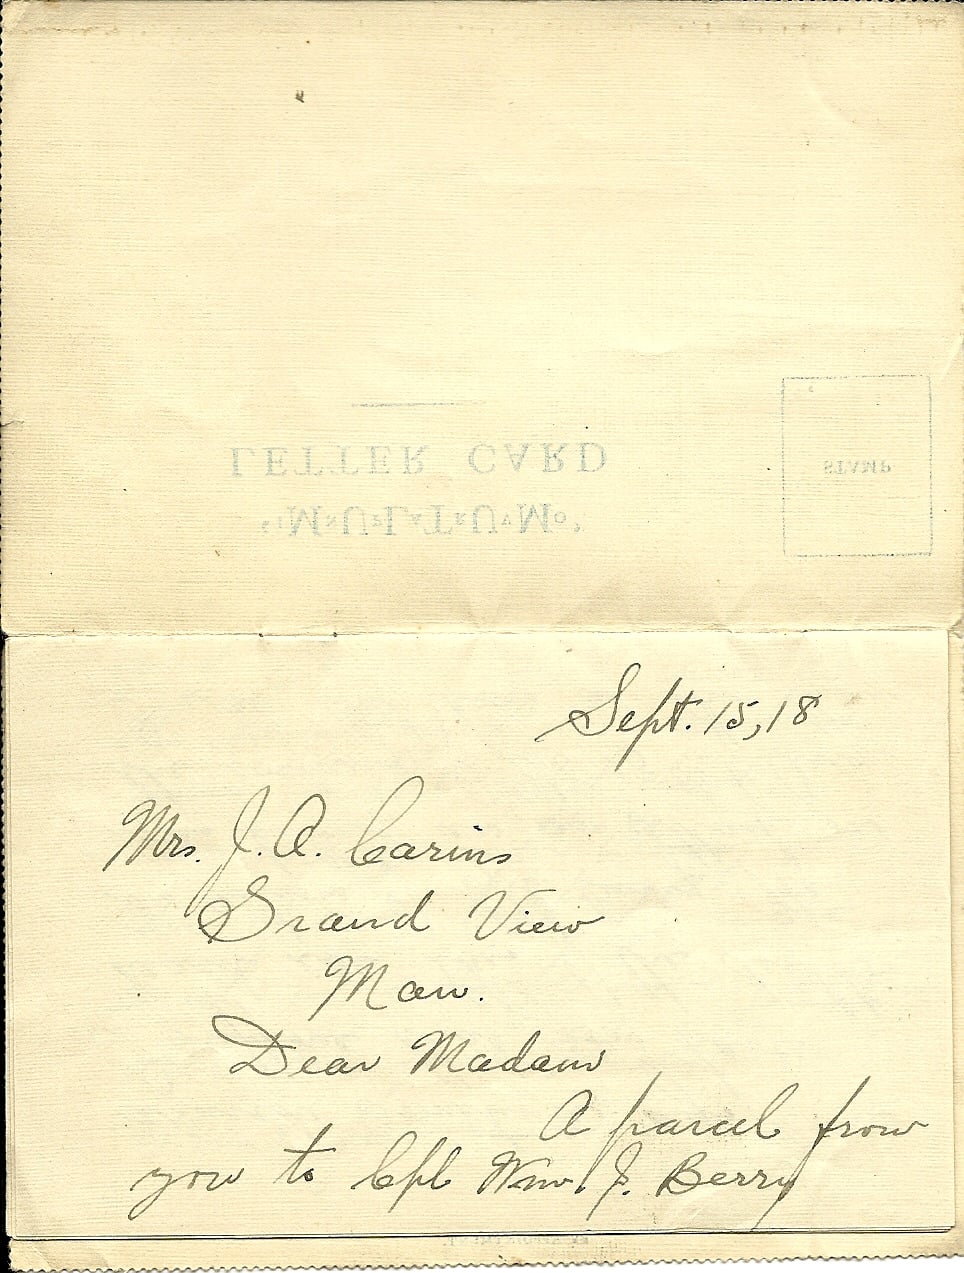 LETTER CARD
STAMP
Sept. 15, 18
Mrs. J. A. Carins
Grand View
Man.
Dear Madam
A parcel from
you to Cpl Wm. J. Berry